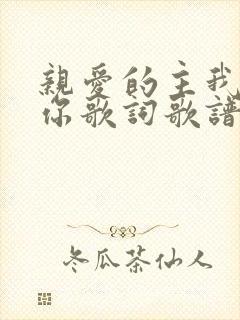 親愛的主我
你歌詞歌譜
冬瓜茶仙人